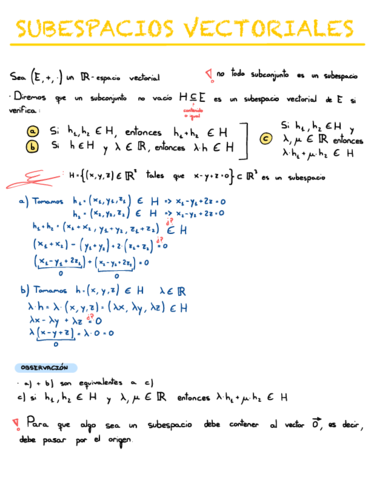 SUBESPACIOS VECTORIALES
Sea (E, +, ·) un ℝ-espacio vectorial
! no todo subconjunto es un subespacio
· Diremos que un subconjunto no vacío H ⊆ E es un subespacio vectorial de E si
contenido o igual
verifica:
a Si h₁, h₂ ∈ H, entonces h₁+h₂ ∈ H
b Si h ∈ H y λ ∈ ℝ, entonces λ·h ∈ H
c Si h₁, h₂ ∈ H y
λ, μ ∈ ℝ, entonces
λ·h₁ + μ·h₂ ∈ H
H = {(x, y, z) ∈ ℝ³ tales que x-y+z=0} ⊂ ℝ³ es un subespacio
a) Tomamos h₁ = (x₁, y₁, z₁) ∈ H => x₁-y₁+2z=0
h₂ = (x₂, y₂, z₂) ∈ H => x₂-y₂+2z=0
h₁+h₂ = (x₁+x₂, y₁+y₂, z₁+z₂) ¿? ∈ H
(x₁+x₂) - (y₁+y₂) + 2(z₁+z₂) ¿? = 0
(x₁-y₁+2z₁) + (x₂-y₂+2z₂) = 0
0 0
b) Tomamos h = (x, y, z) ∈ H λ ∈ ℝ
λ·h = λ·(x, y, z) = (λx, λy, λz) ¿? ∈ H
λx - λy + λz ¿? = 0
λ(x-y+z) = λ·0 = 0
0
OBSERVACIÓN
· a) + b) son equivalentes a c)
c) si h₁, h₂ ∈ H y λ, μ ∈ ℝ entonces λ·h₁ + μ·h₂ ∈ H
! Para que algo sea un subespacio debe contener al vector 0⃗, es decir,
debe pasar por el origen.